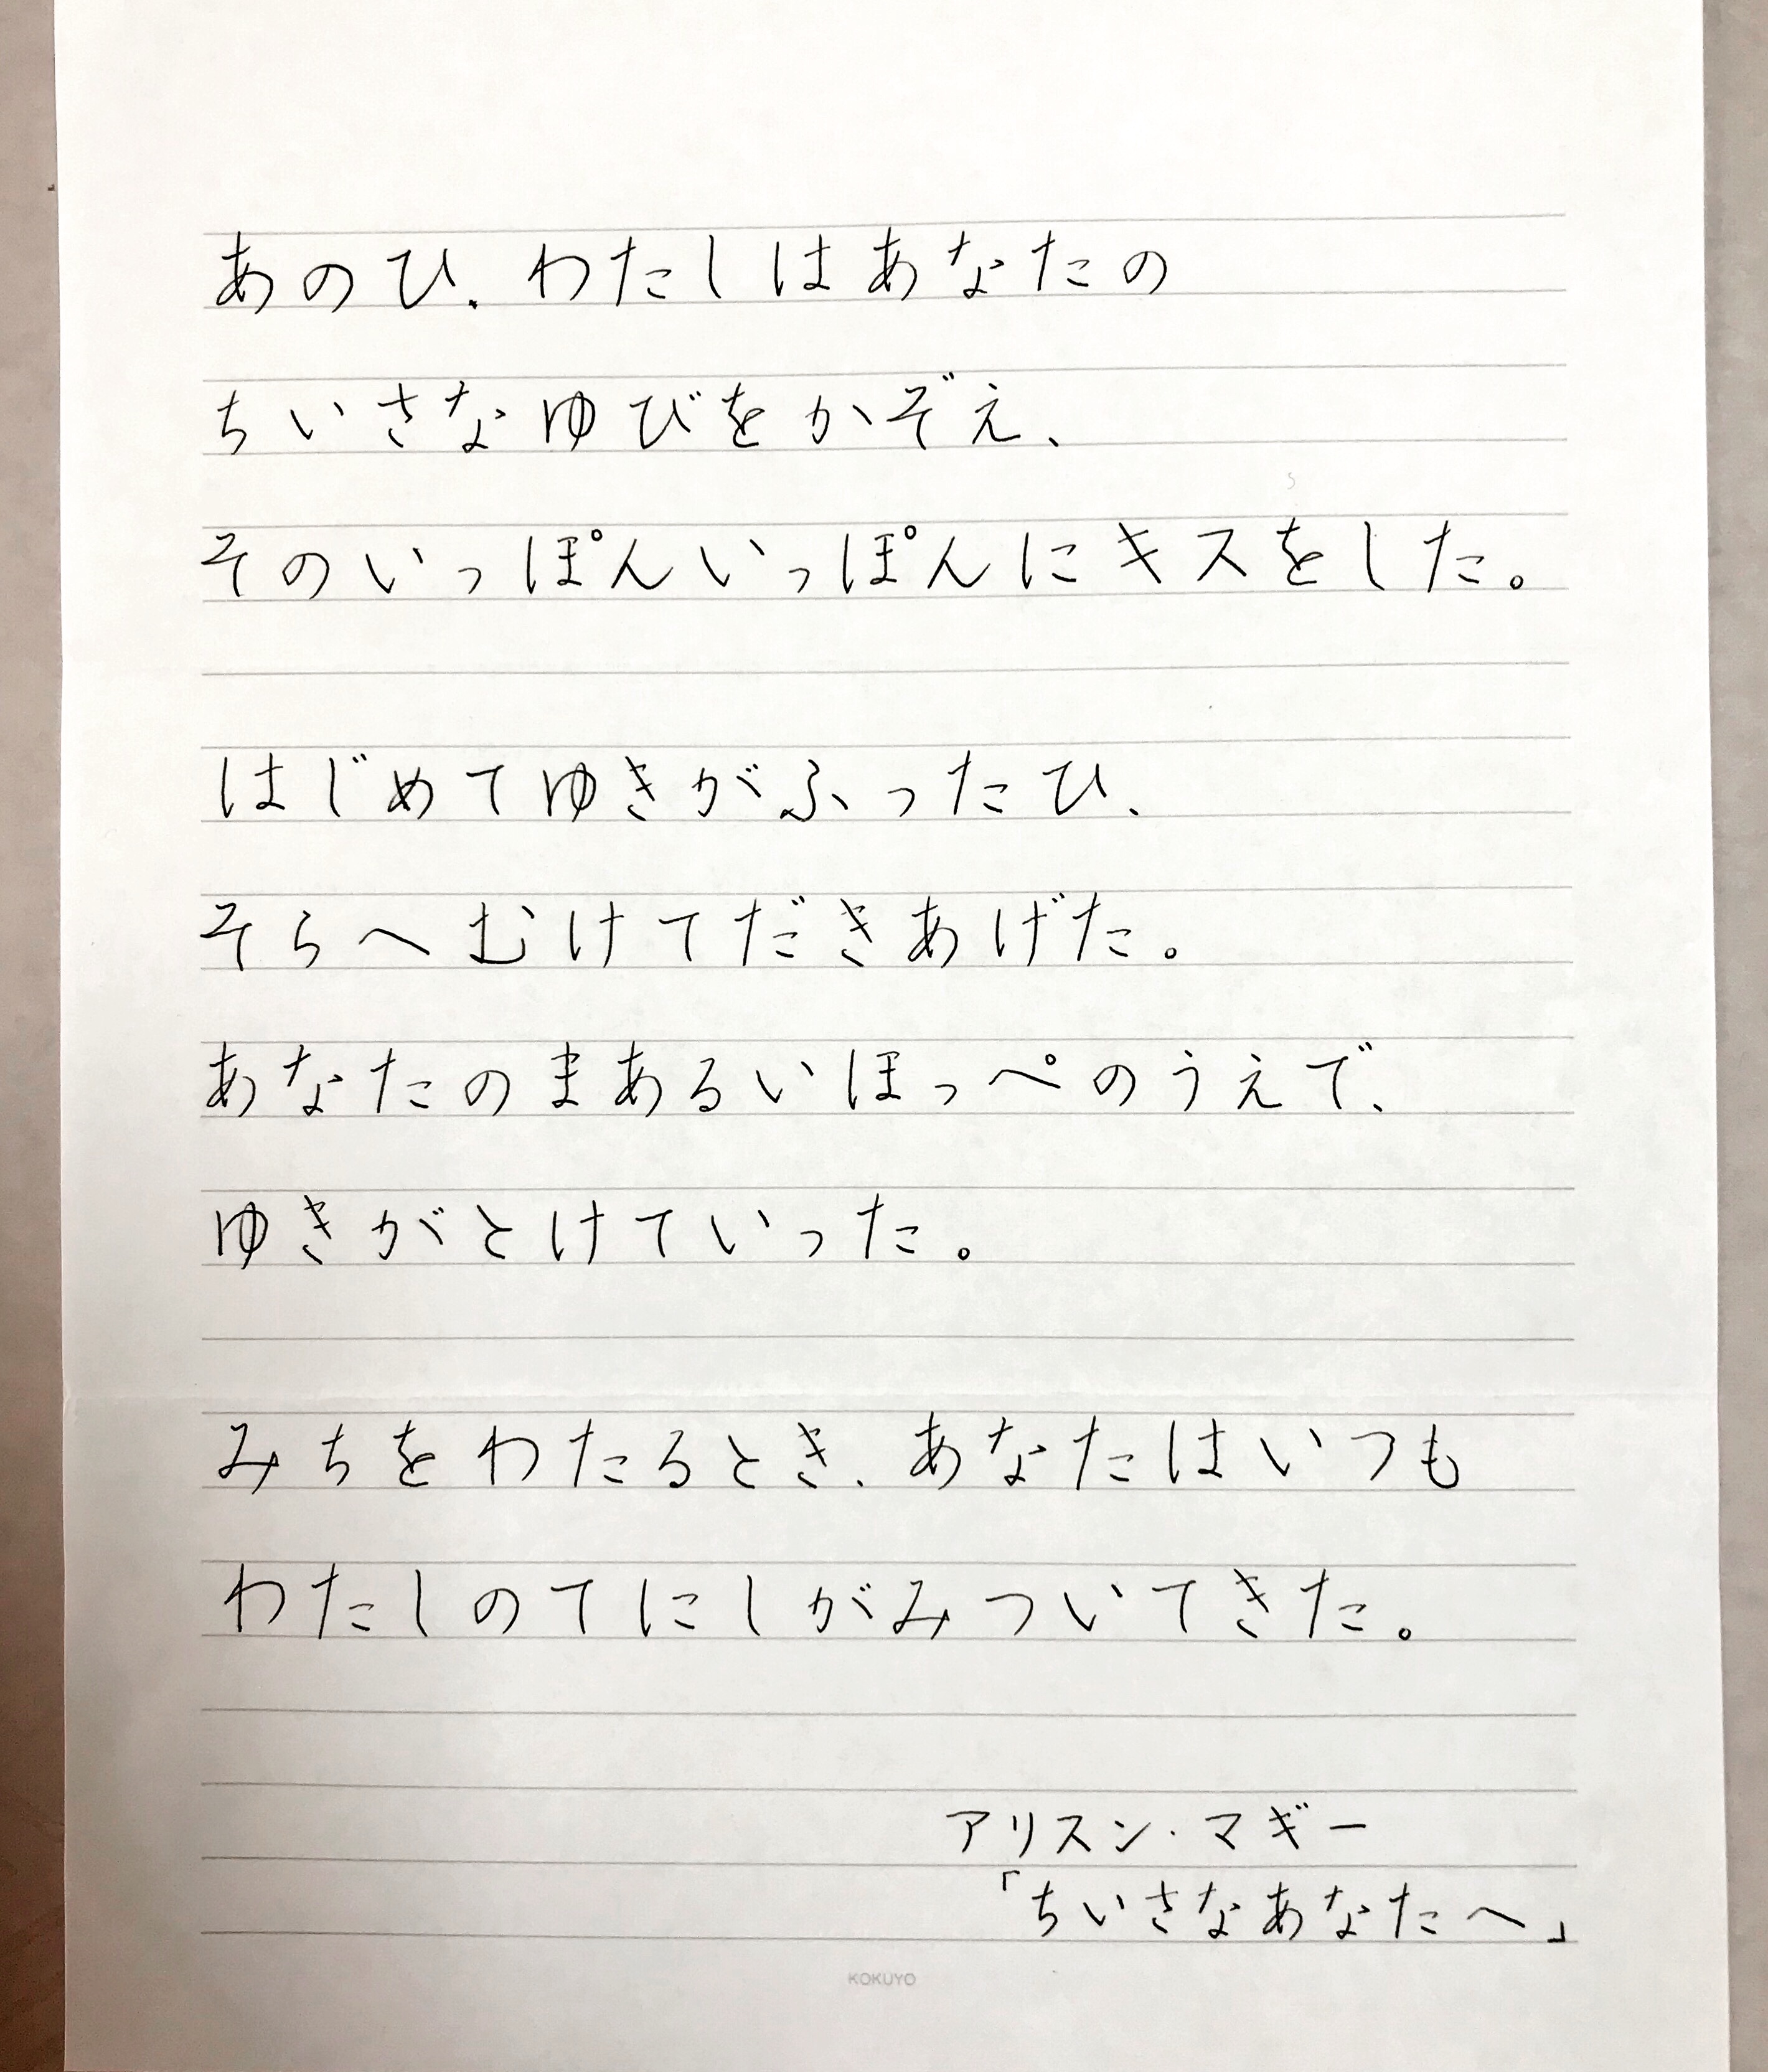 あのひ、わたしはあなたの
ちいさなゆびをかぞえ、
そのいっぽんいっぽんにキスをした。
はじめてゆきがふったひ、
そらへむけてだきあげた。
あなたのまあるいほっぺのうえで、
ゆきがとけていった。
みちをわたるとき、あなたはいつも
わたしのてにしがみついてきた。
アリスン・マギー
「ちいさなあなたへ」
KOKUYO